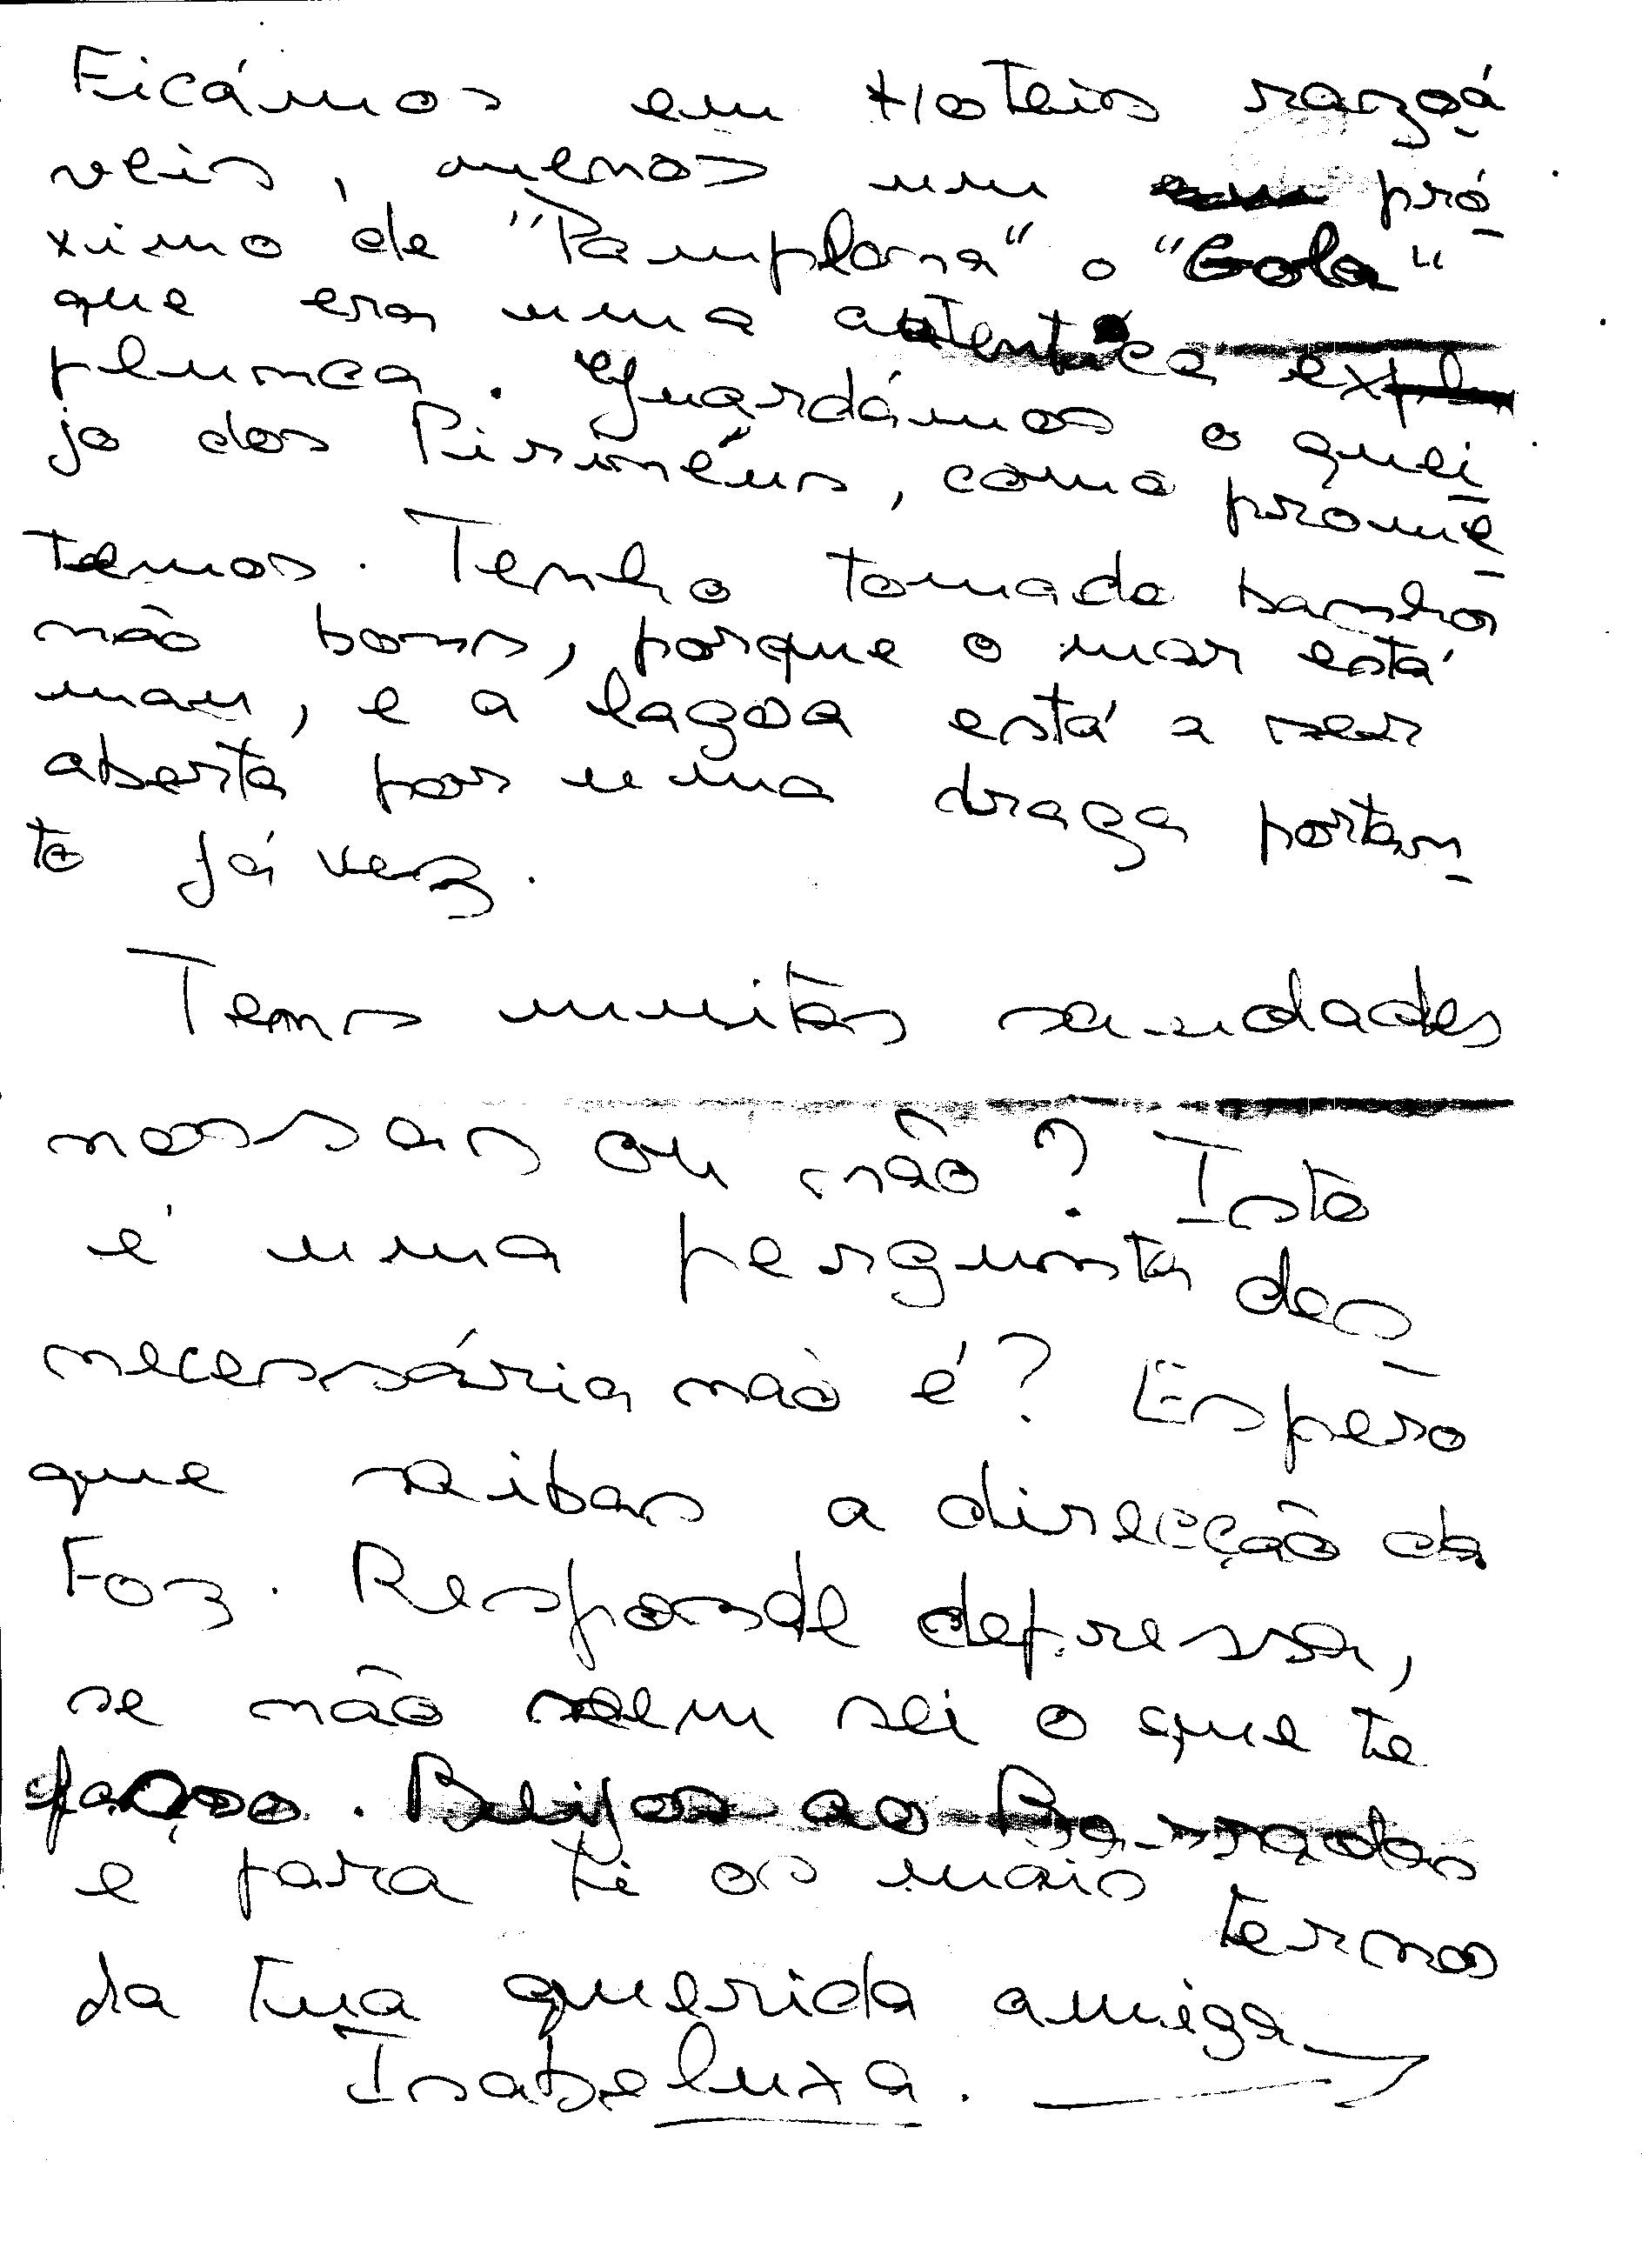 Ficámos em Hoteis razoá
veis, menos um pró
ximo de "Pamplona" o "Gola"
que era uma autentica ex
plunca. Guardámos o quei
jo dos Pirinéus, como prome
temos. Tenho tomado banhos
não bons, porque o mar está
mau, e a lagoa está a ser
aberta por uma draga portan
to já vez.
Tens muitas saudades
nossas ou não? Isto
é uma pergunta des
necessária não é? Espero
que saibas a direcção da
Foz. Responde depressa,
se não nem sei o que te
faço. Beijos ao
e para ti os mais ternos
da tua querida amiga
Isabeluxa.